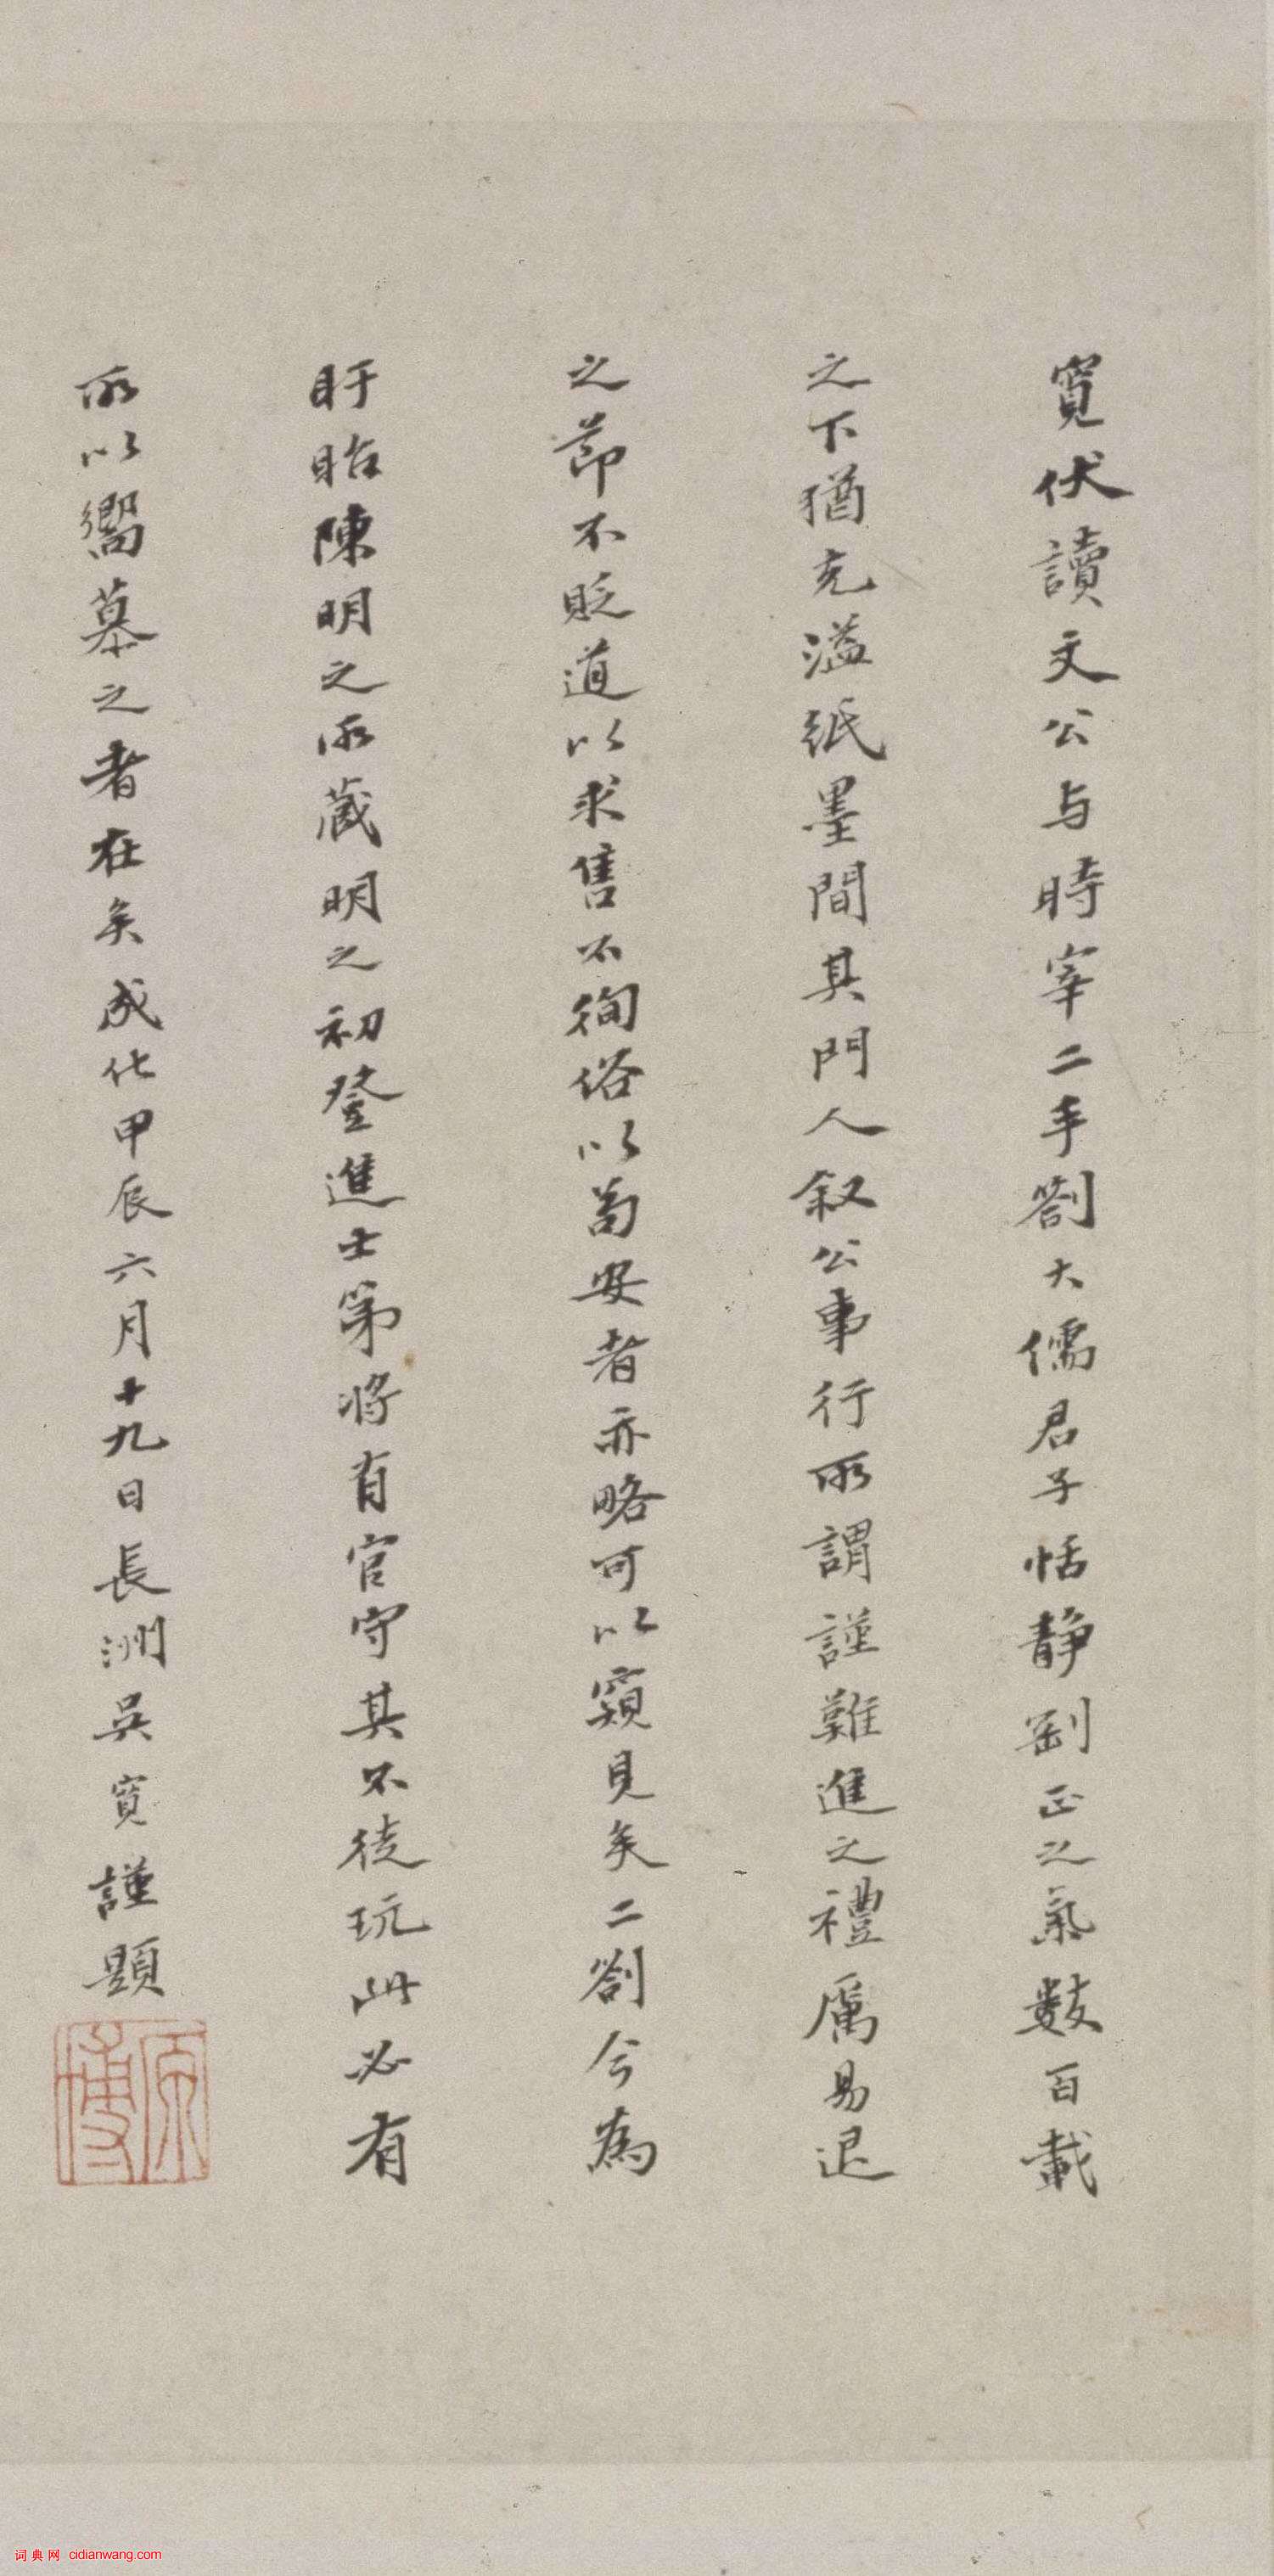 寬伏讀文公与時宰二手劄大儒君子恬靜剛正之氣數百載
之下猶充溢紙墨間其門人叙公事行所謂謹難進之禮厲易退
之節不貶道以求售不徇俗以苟安者亦略可以窺見矣二劄今為
盱眙陳明之所藏明之初登進士第將有官守其不徒玩此必有
所以嚮慕之者在矣成化甲辰六月十九日長洲吳寬謹題
原博
词典网 cidianwang.com